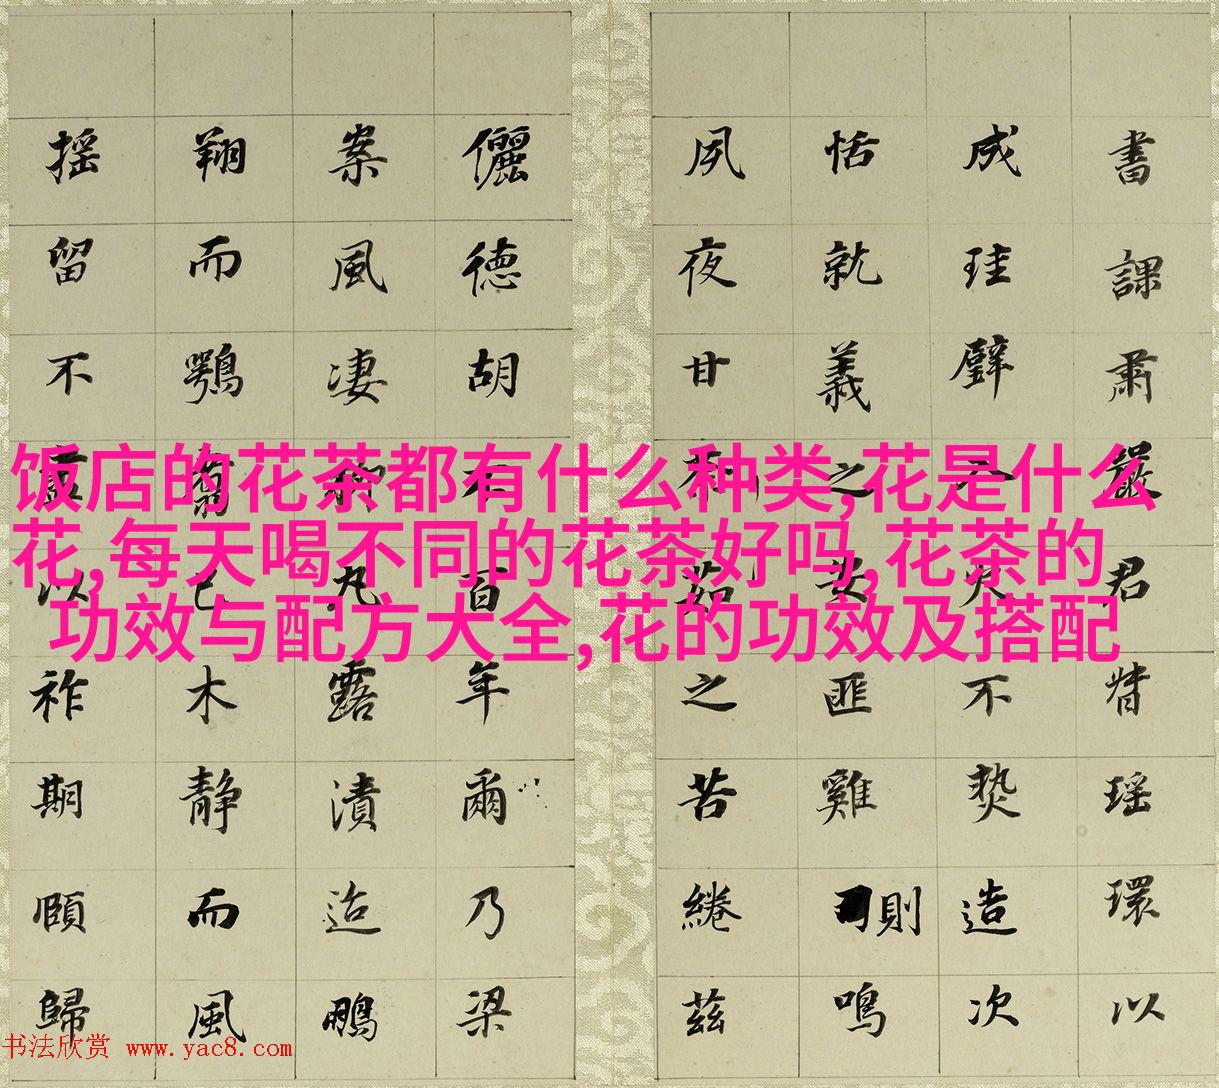 饭店的花茶都有什么种类,花是什么
花,每天喝不同的花茶好吗,花茶的
功效与配方大全,花的功效及搭配
書課肅嚴君瑶環以
成珪璧不造次
恬就義之匪雞則鳴
夙夜甘茹之苦綣茲
儷德胡不百年爾乃梁
案風淒丸露漬迨鵬
翔而鶚翥已木靜而風
摇留不以祚期頤歸
书法欣赏 www.yac8.com